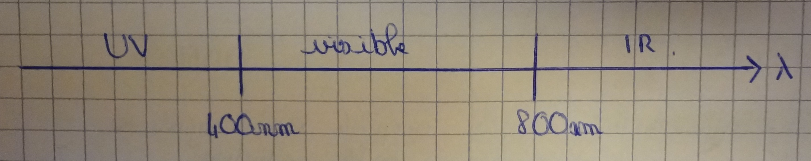 UV visible IR.
λ
400nm 800nm